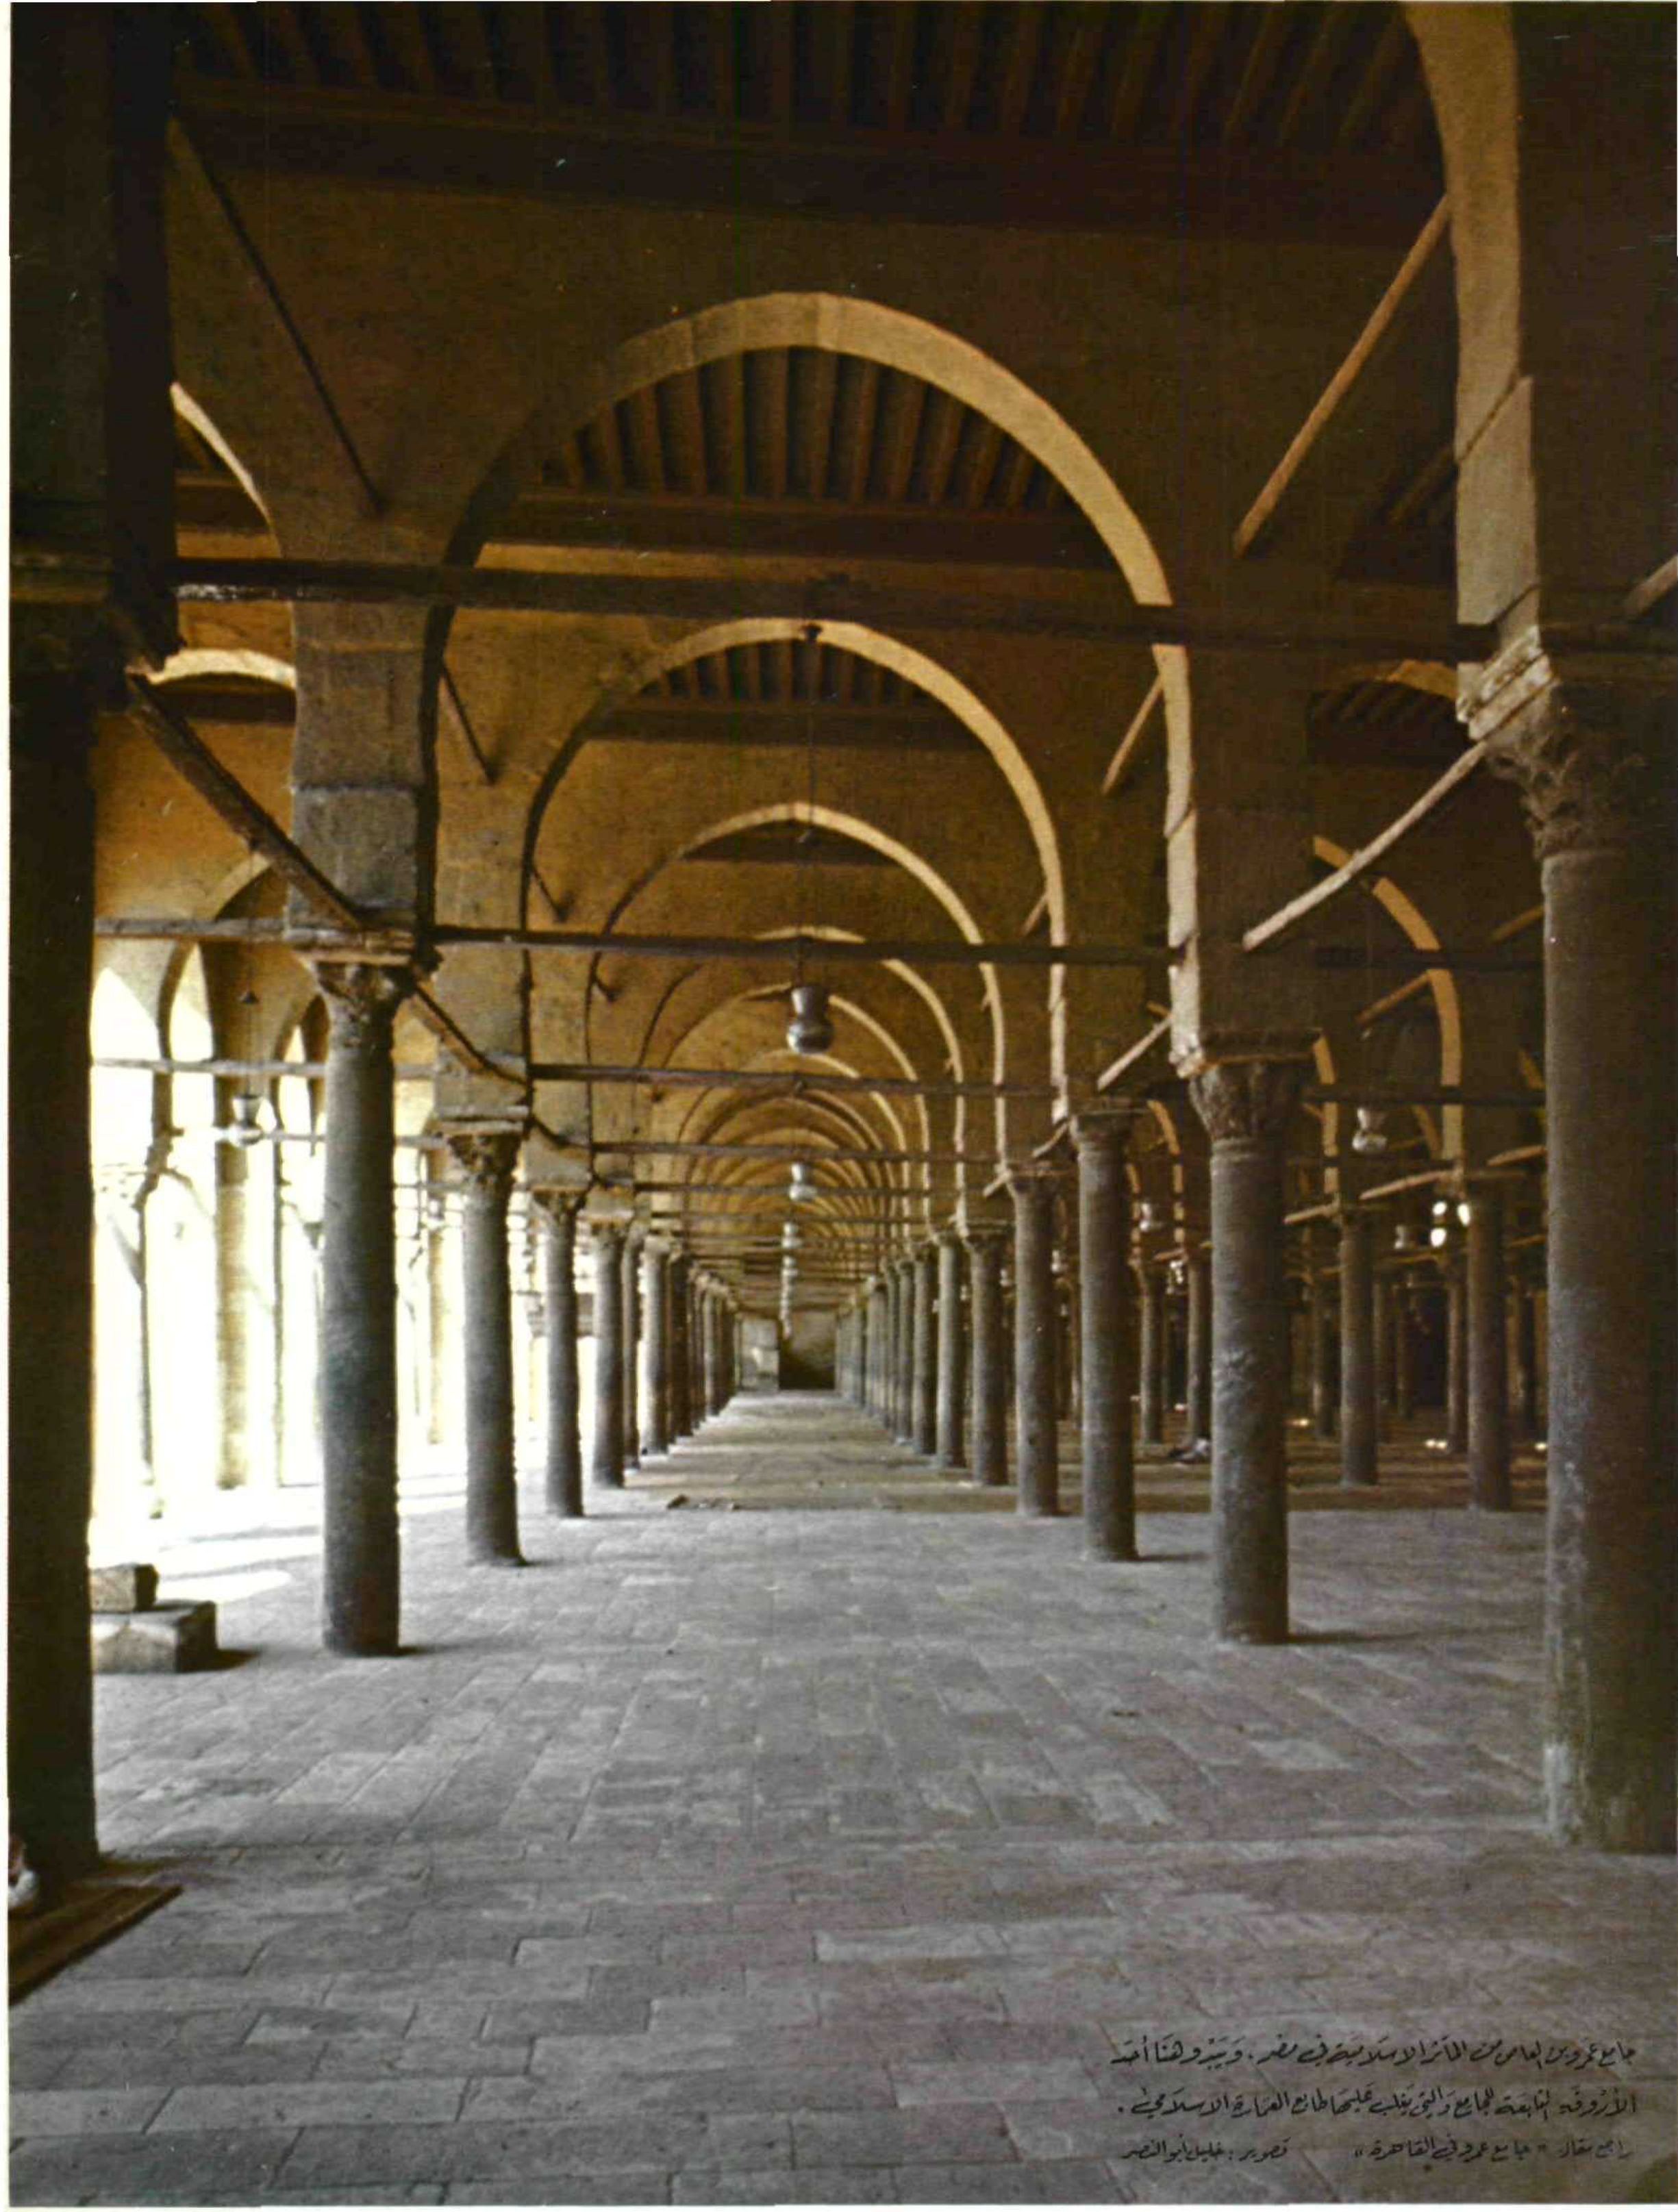 جامع عمرو بن العاص من المآثر الاسلامية في مصر. وَيَبْدو هنَا أحَد
الأرْوقَه التابعَة للجامع وَالتي يَغلب عَليهَا طابع العمَارة الاسلاميّ.
راجع مقال «جامع عمرو في القاهرة» تصوير: خليل أبو النصر